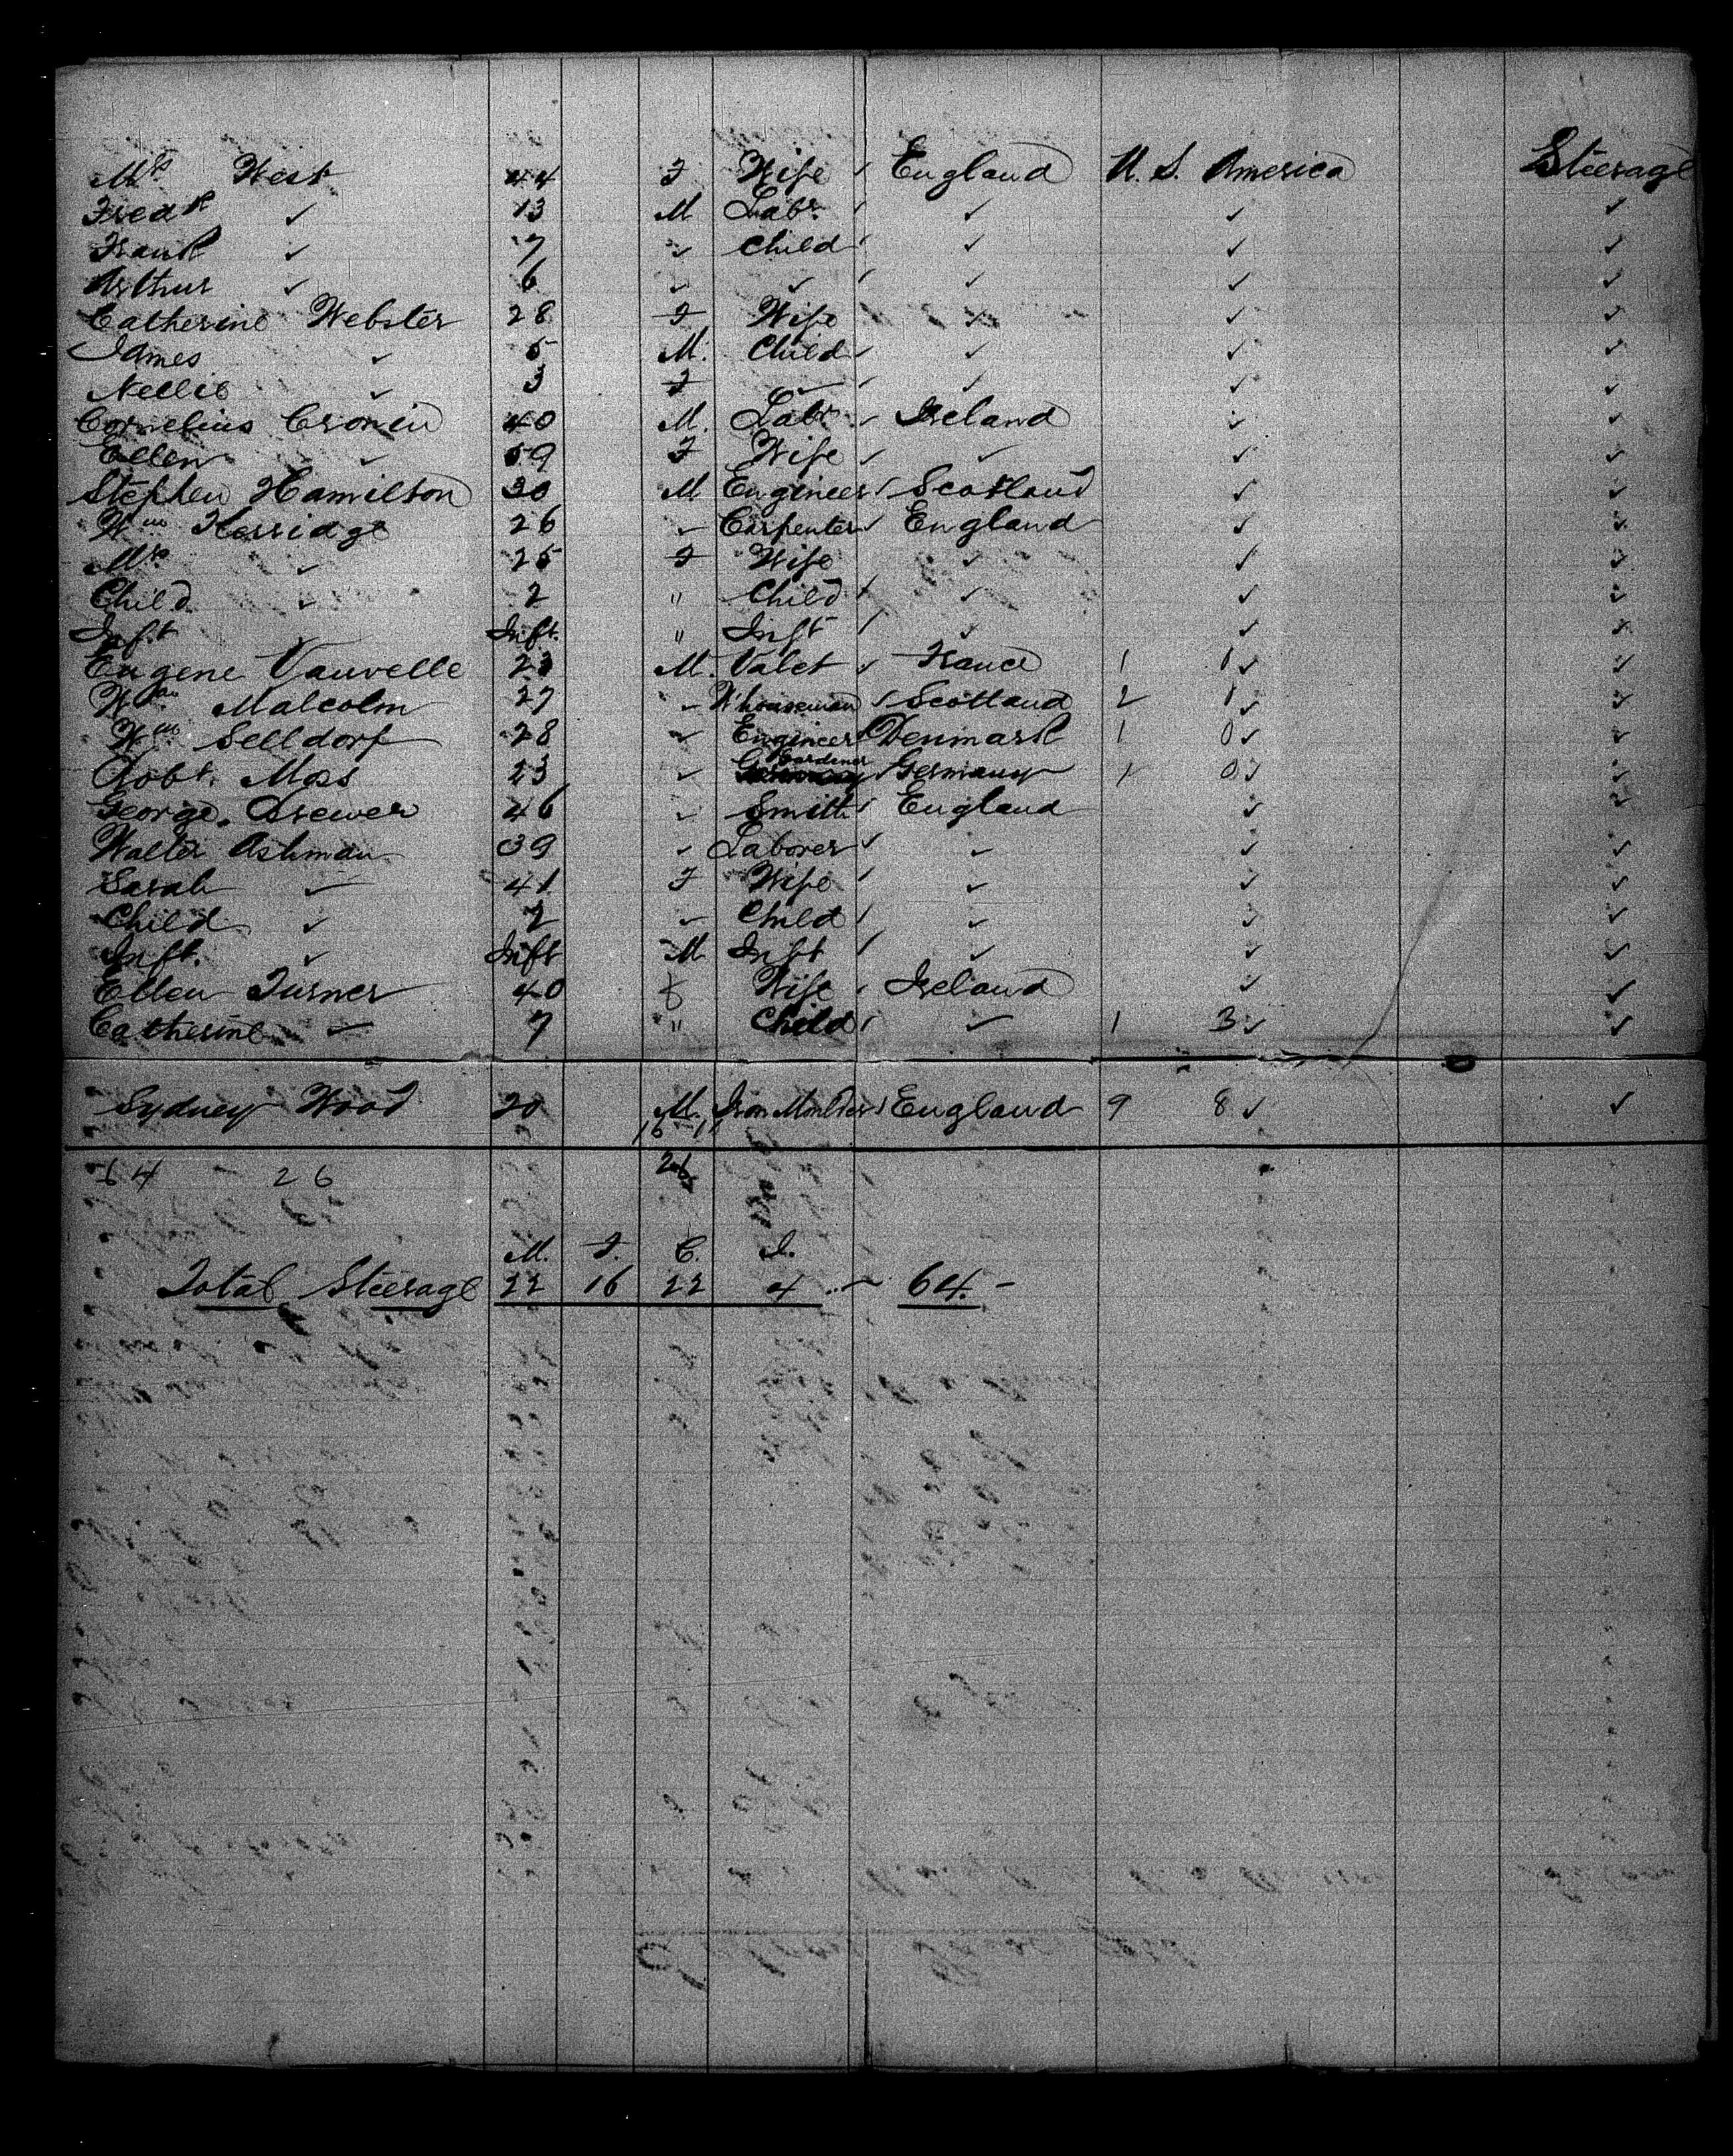 Mrs West 44 F Wife ✓ England U. S. America Steerage
Fredk ✓ 13 M Labr ✓ ✓ ✓ ✓
Frank ✓ 7 ✓ Child ✓ ✓ ✓ ✓
Arthur ✓ 6 ✓ ✓ ✓ ✓ ✓ ✓
Catherine Webster 28 F Wife ✓ ✓ ✓ ✓
James ✓ 5 M. Child ✓ ✓ ✓ ✓
Nellie ✓ 3 F ✓ ✓ ✓ ✓ ✓
Cornelius Cronin 40 M. Labr ✓ Ireland ✓ ✓
Ellen ✓ 59 F Wife ✓ ✓ ✓ ✓
Stephen Hamilton 30 M Engineer ✓ Scotland ✓ ✓
Wm Herridge 26 ✓ Carpenter ✓ England ✓ ✓
Mrs ✓ 25 F Wife ✓ ✓ ✓
Child ✓ 2 " Child ✓ ✓ ✓ ✓
Inft ✓ Inft. " Inft ✓ ✓ ✓ ✓
Eugene Vauvelle 23 M. Valet ✓ France 1 1 ✓ ✓
Wm Malcolm 27 ✓ W'houseman ✓ Scotland 2 1 ✓ ✓
Wm Selldorf 28 ✓ Engineer Denmark 1 0 ✓ ✓
Robt. Moss 23 ✓ Gardener ✓ Germany 1 0 ✓ ✓
George Brewer 46 ✓ Smith ✓ England ✓ ✓
Walter Ashman 39 ✓ Laborer ✓ ✓ ✓ ✓
Sarah ✓ 41 F Wife ✓ ✓ ✓ ✓
Child ✓ 2 ✓ Child ✓ ✓ ✓ ✓
Inft. ✓ Inft M Inft ✓ ✓ ✓ ✓
Ellen Turner 40 f Wife ✓ Ireland ✓ ✓
Catherine ✓ 7 " Child ✓ ✓ 1 3 ✓ ✓
Sydney Wood 20 M. Iron Moulder ✓ England 9 8 ✓ ✓
64 - 26 26
M. F. C. I.
Total Steerage 22 16 22 4 .. ~ 64. -